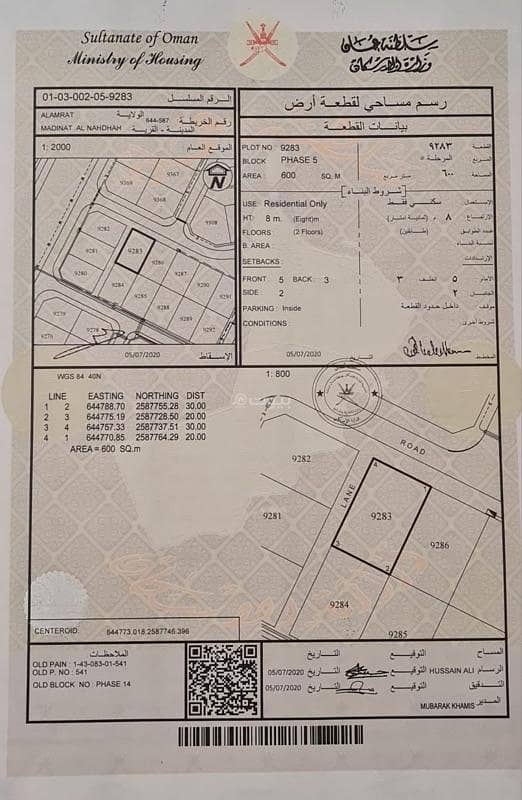 Sultanate of Oman
Ministry of Housing
سلطنة عمان
وزارة الإسكان
01-03-002-05-9283 الرقم المسلسل
رسم مساحي لقطعة أرض
ALAMRAT الولاية
MADINAT AL NAHDHAH المدينة - القرية
644-587 رقم الخريطة
بيانات القطعة
1: 2000 الموقع العام
PLOT NO 9283 ٩٢٨٣ القطعة
BLOCK PHASE 5 المرحلة ٥ المربع
AREA : 600 SQ. M متر مربع ٦٠٠ المساحة
شروط البناء
USE: Residential Only سكني فقط الاستعمال
HT: 8 m. (Eight)m ٨ م (ثمانية امتار) الارتفاع
FLOORS (2 Floors) (طابقين) عدد الطوابق
B. AREA : نسبة البناء
SETBACKS: الارتدادات
FRONT : 5 BACK : 3 ٣ الخلف ٥ الامام
SIDE : 2 ٢ الجانبين
PARKING : Inside داخل حدود القطعة موقف
CONDITIONS : شروط اخرى
9369
9367
9368
9308
9282
9283
9281
9286
9280
9284
9287
9285
9288
9291
9279
9278
9289
9292
9276
05/07/2020 الإسقاط
05/07/2020 التاريخ
المخطط
WGS 84 40N
1: 800
LINE EASTING NORTHING DIST
1 2 644788.70 2587755.28 30.00
2 3 644775.19 2587728.50 20.00
3 4 644757.33 2587737.51 30.00
4 1 644770.85 2587764.29 20.00
AREA = 600 SQ.m
ROAD
LANE
9282
9281
9283
9286
9284
9285
4
3
2
CENTEROID: 644773.018,2587746.396
الملاحظات
OLD PAIN : 1-43-083-01-541
OLD P. NO : 541
OLD BLOCK NO : PHASE 14
التاريخ التوقيع المساح
05/07/2020 التاريخ التوقيع HUSSAIN ALI الرسام
05/07/2020 التاريخ التوقيع التدقيق
MUBARAK KHAMIS المدير